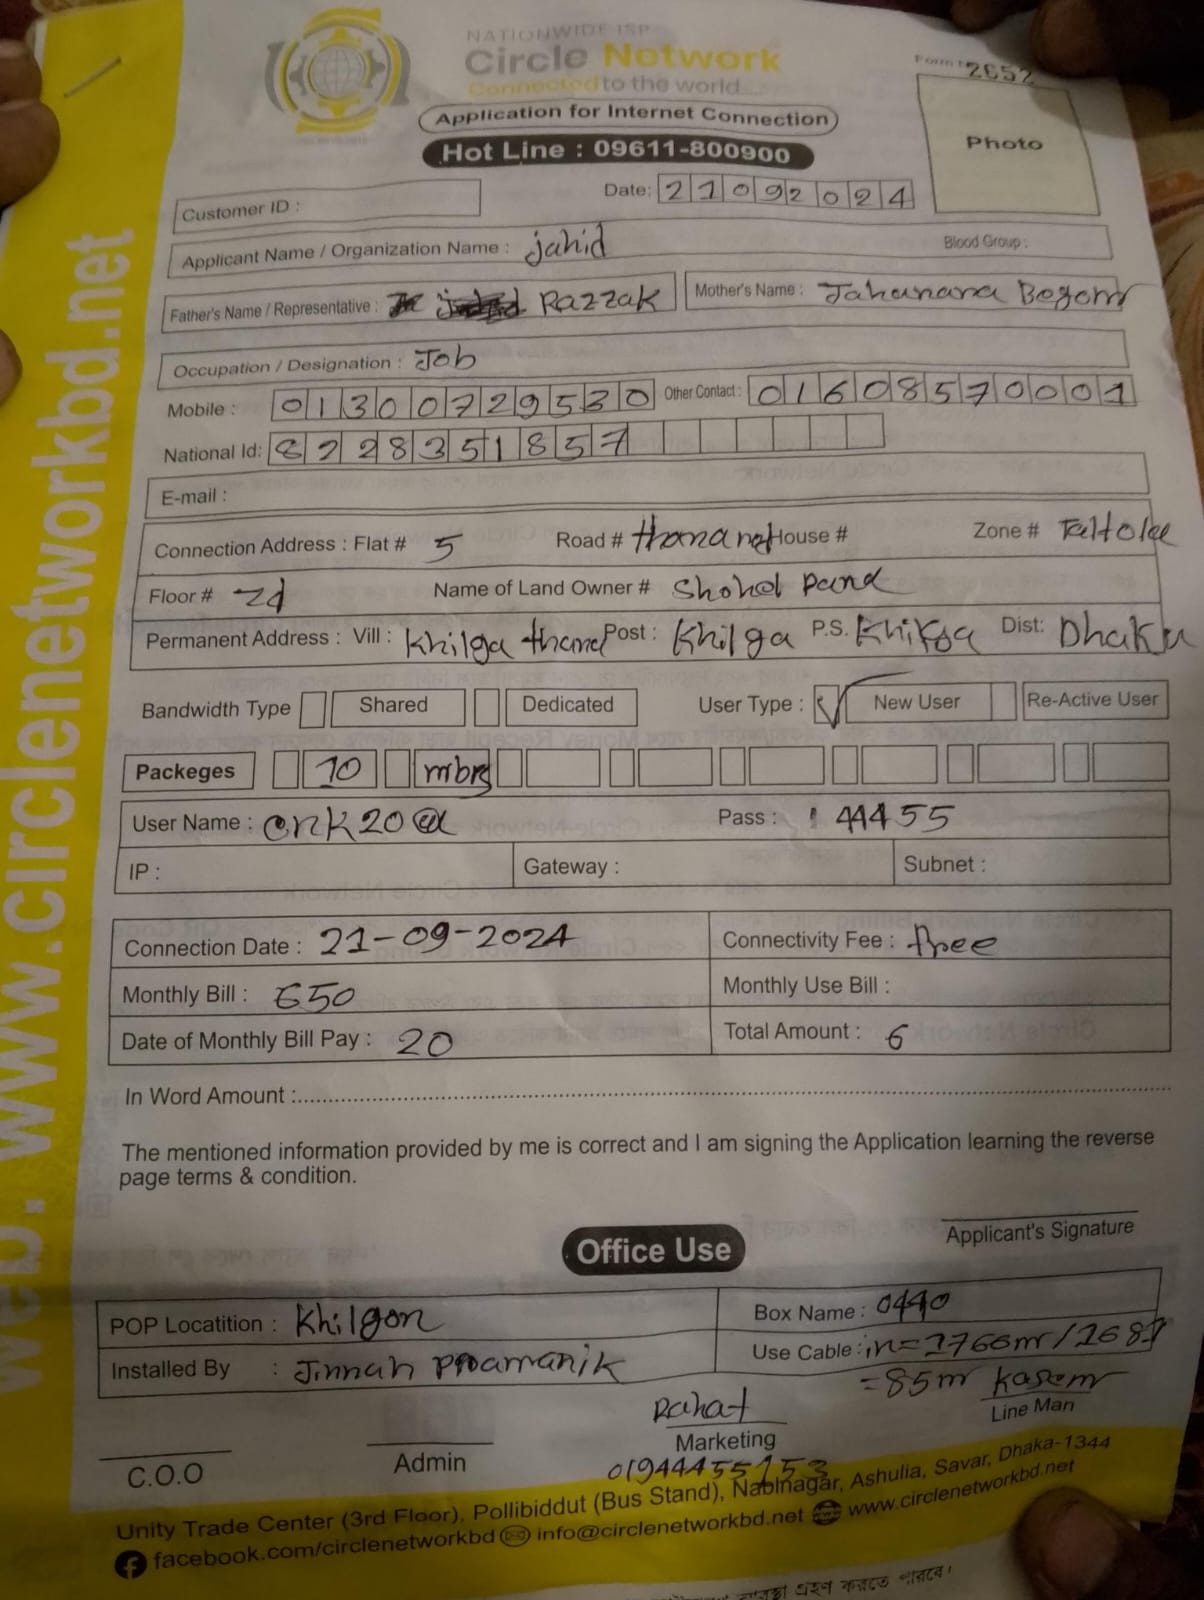 NATIONWIDE ISP
Circle Network
Connected to the world...
Form # 2652
Application for Internet Connection
Hot Line : 09611-800900
Photo
Customer ID :
Date: 21092024
Applicant Name / Organization Name : jahid
Blood Group :
Father's Name / Representative : Razzak
Mother's Name : Jahanara Begom
Occupation / Designation : Job
Mobile : 01300729530
Other Contact : 01608570001
National Id: 8228351857
E-mail :
Connection Address : Flat # 5 Road # House # Zone # Taltola
Floor # 2d Name of Land Owner # Shohel
Permanent Address : Vill : Khilga thana Post : Khilga P.S. Dist: Dhaka
Bandwidth Type Shared Dedicated User Type : New User Re-Active User
Packeges 10 mbps
User Name : cnk20@ Pass : 44455
IP : Gateway : Subnet :
Connection Date : 21-09-2024 Connectivity Fee : free
Monthly Bill : 650 Monthly Use Bill :
Date of Monthly Bill Pay : 20 Total Amount : 6
In Word Amount :
The mentioned information provided by me is correct and I am signing the Application learning the reverse
page terms & condition.
Applicant's Signature
Office Use
POP Locatition : Khilgon Box Name : 0440
Installed By : Jinnah Pramanik Use Cable : in=1766m/1681
=85m Kasem
Rahat Line Man
C.O.O Admin Marketing
01944455153
Unity Trade Center (3rd Floor), Pollibiddut (Bus Stand), Nabinagar, Ashulia, Savar, Dhaka-1344
facebook.com/circlenetworkbd info@circlenetworkbd.net www.circlenetworkbd.net
এহণ করতে পারবে।
web: www.circlenetworkbd.net